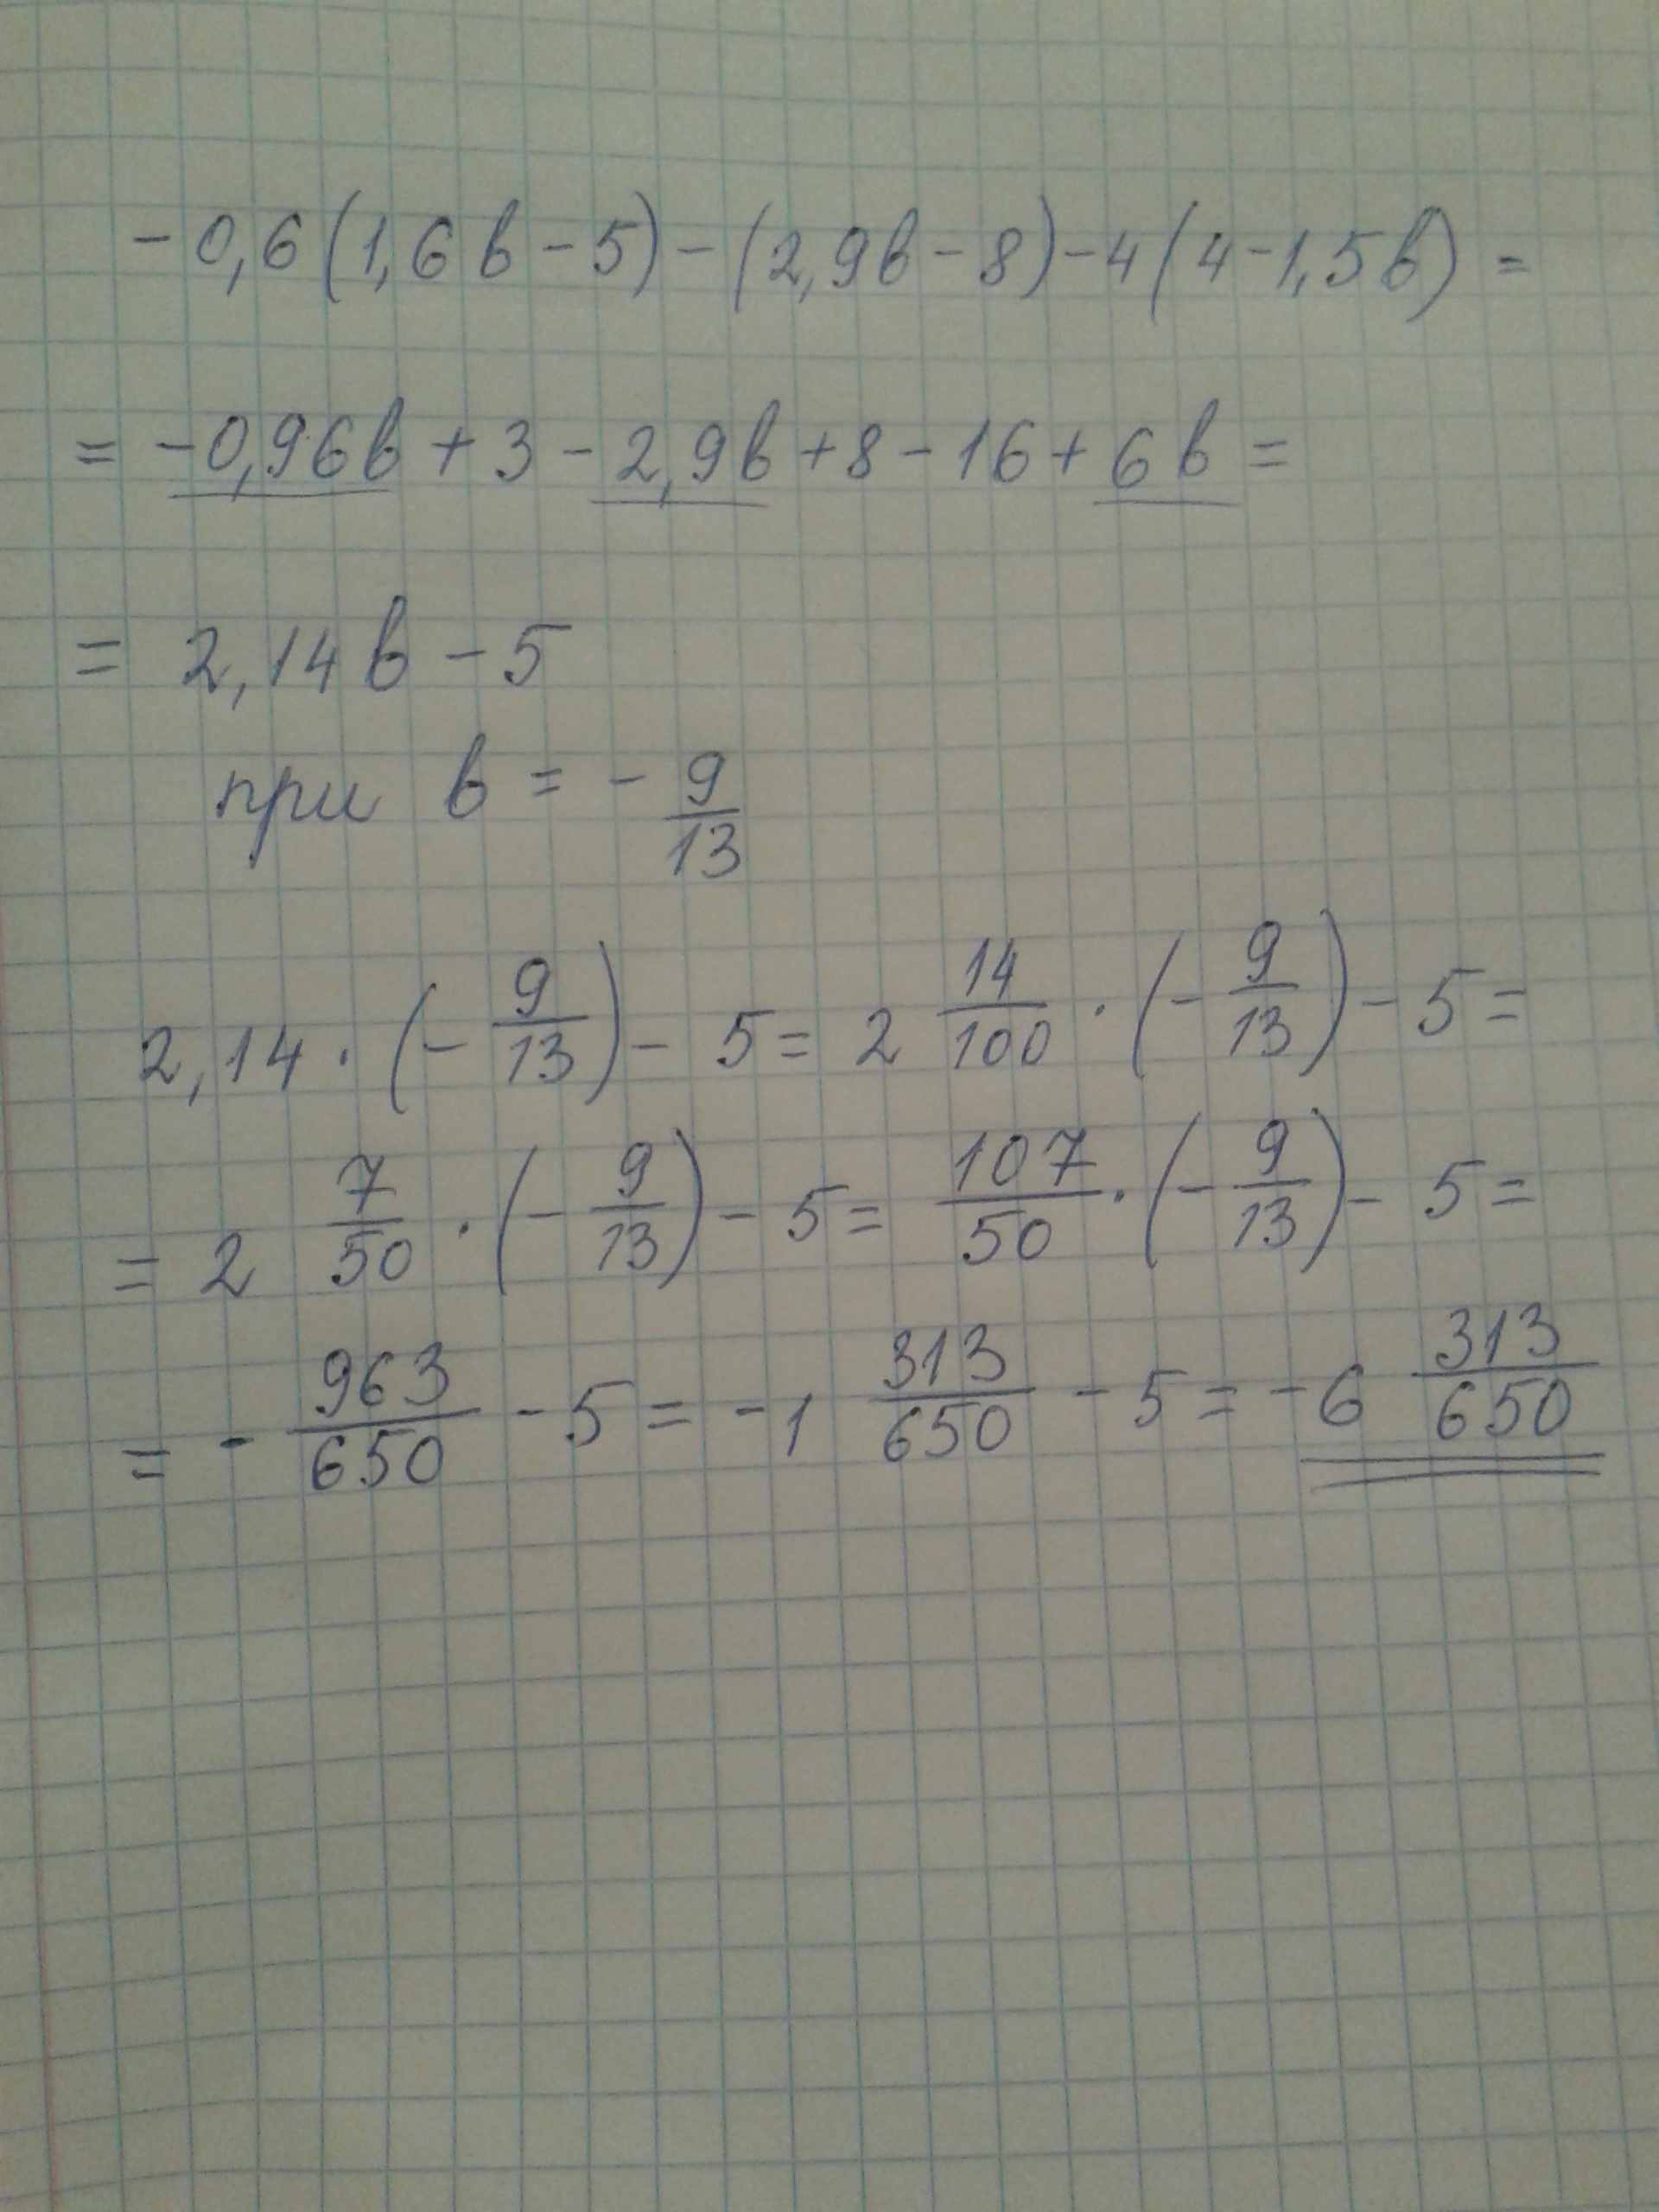 - 0,6 (1,6 в - 5) - (2,9в - 8) - 4 (4 - 1,5 в) =
= - 0,96в + 3 - 2,9в + 8 - 16 + 6 в =
= 2,14 в - 5
при в = - 9/13
2,14 · (- 9/13) - 5 = 2 14/100 · (- 9/13) - 5 =
= 2 7/50 · (- 9/13) - 5 = 107/50 · (- 9/13) - 5 =
= - 963/650 - 5 = - 1 313/650 - 5 = - 6 313/650